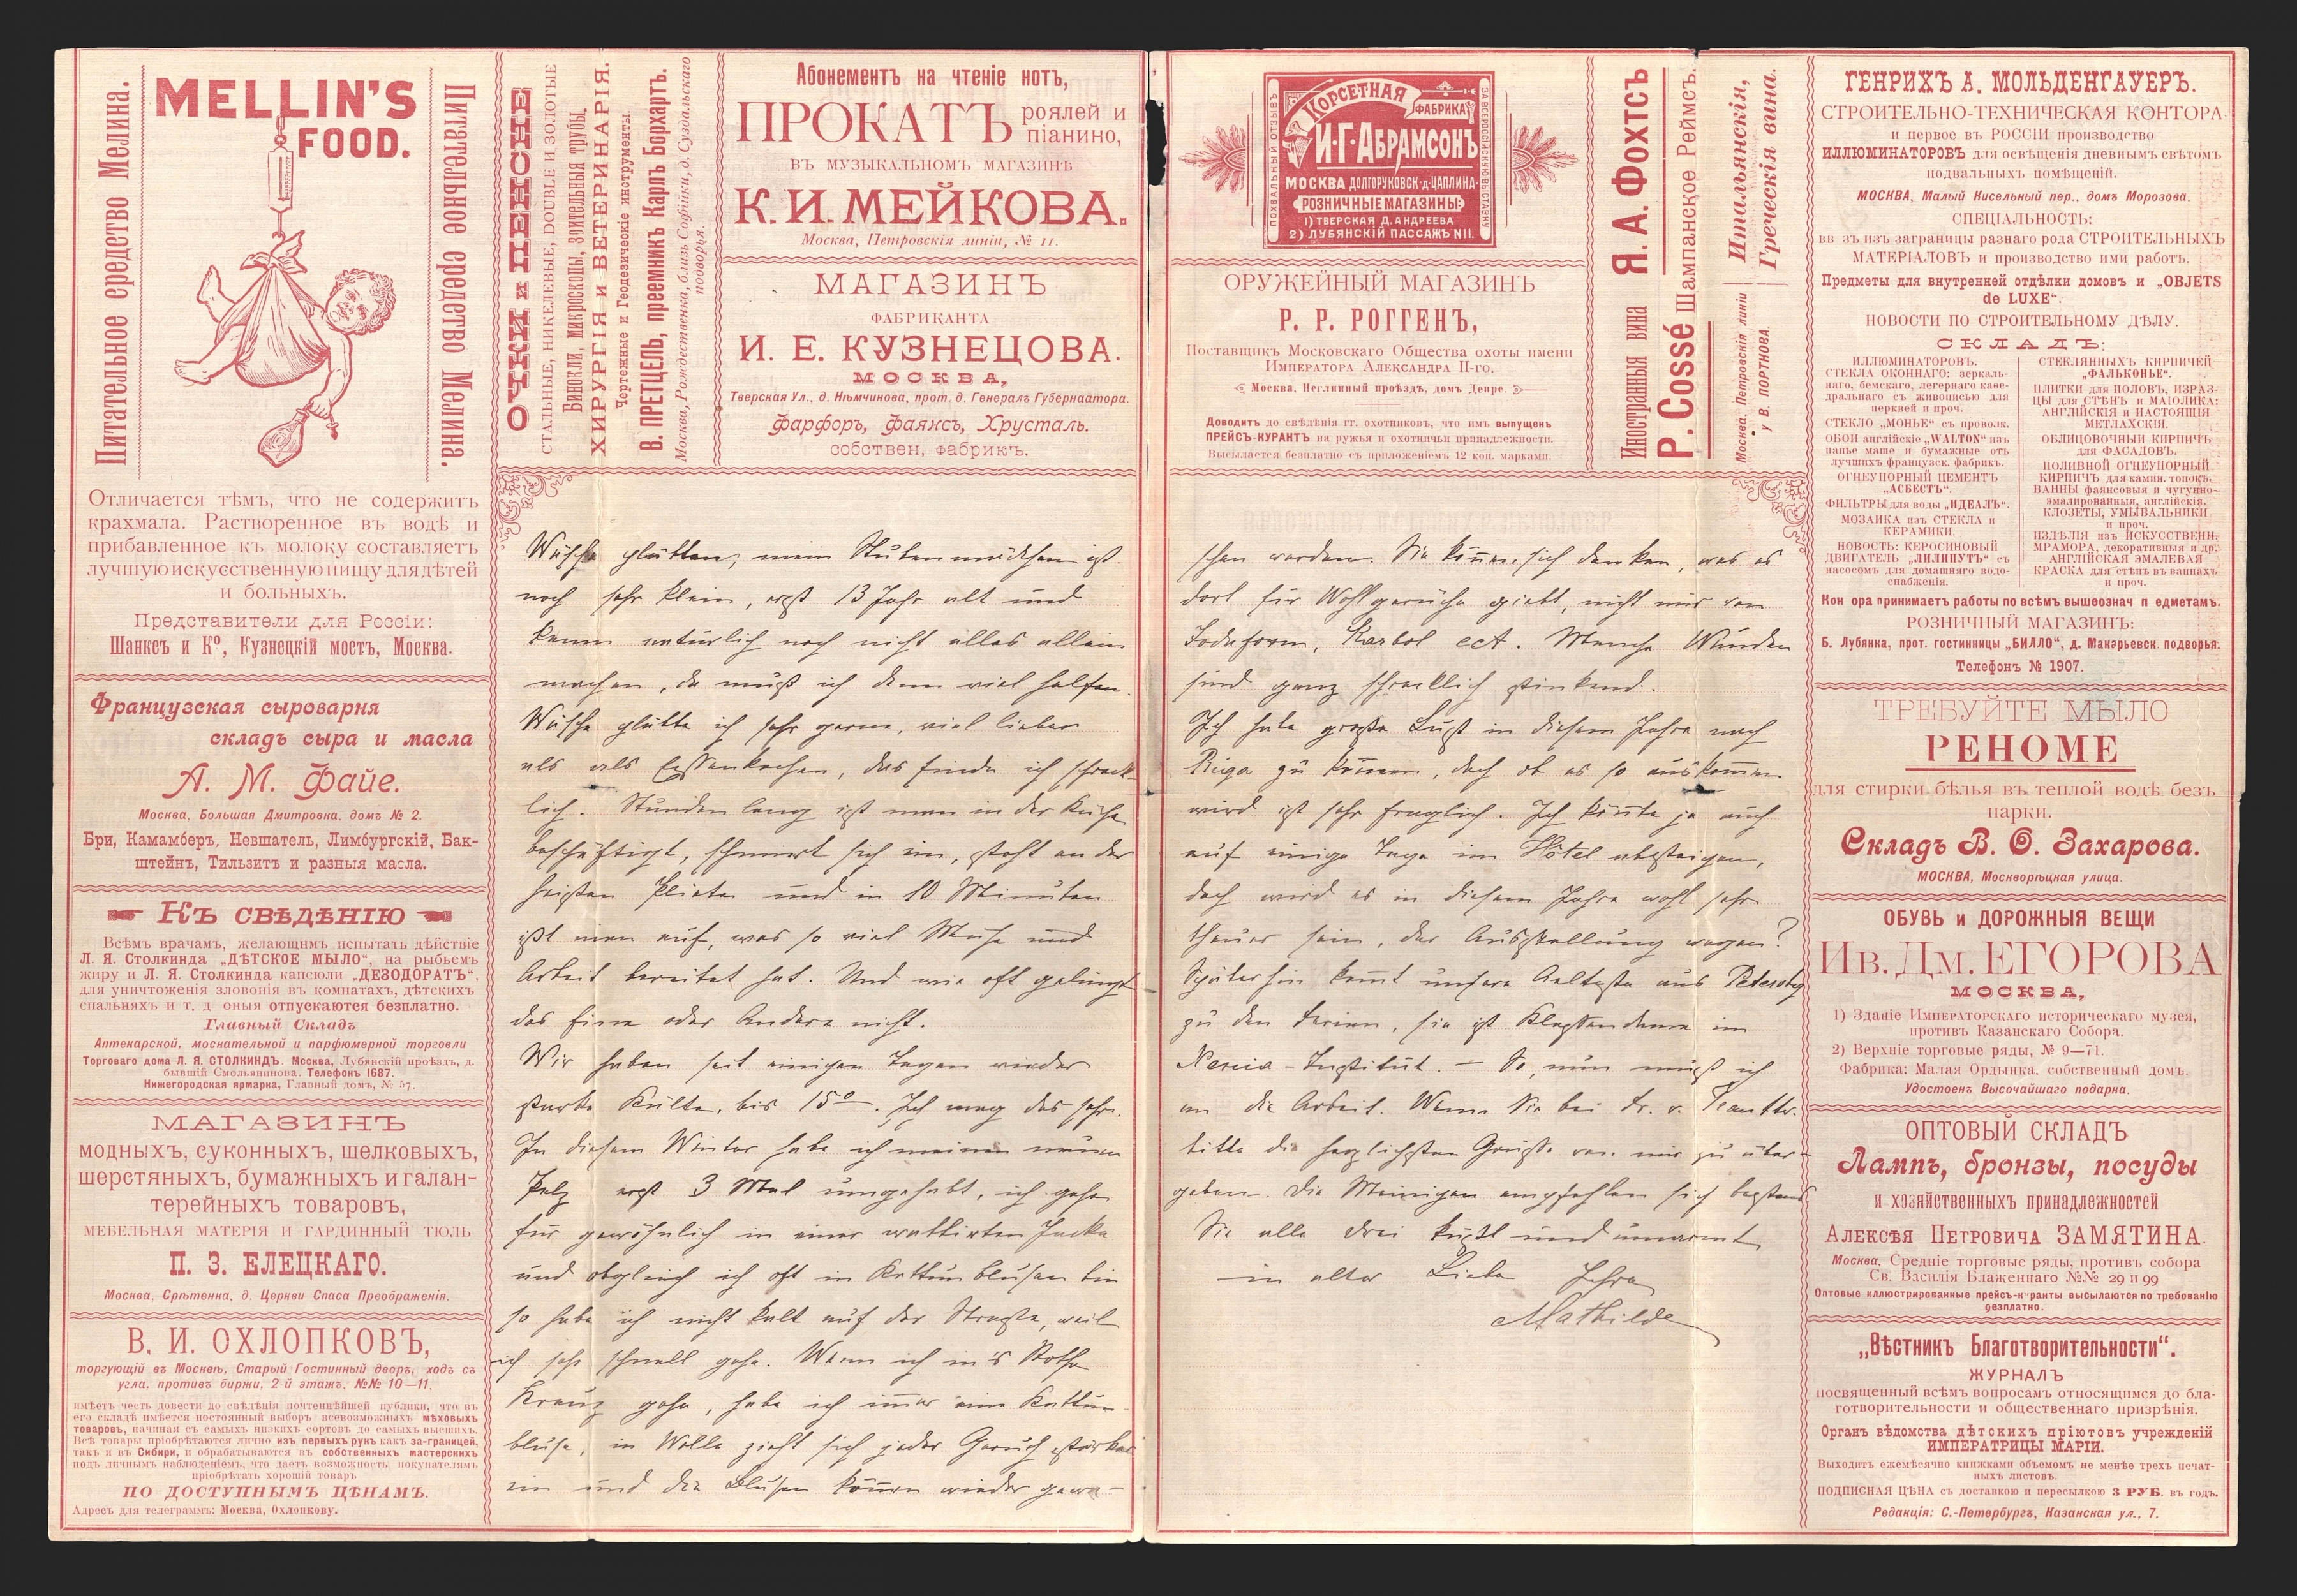 Питательное средство Мелина.
MELLIN'S
FOOD.
Питательное средство Мелина.
Отличается тѣмъ, что не содержитъ
крахмала. Растворенное въ водѣ и
прибавленное къ молоку составляетъ
лучшую искусственную пищу для дѣтей
и больныхъ.
Представители для Россіи:
Шанксъ и Кº, Кузнецкій мостъ, Москва.
Французская сыроварня
складъ сыра и масла
А. М. Файе.
Москва, Большая Дмитровка, домъ № 2.
Бри, Камамберъ, Невшатель, Лимбургскій, Бак-
штейнъ, Тильзитъ и разныя масла.
Къ свѣдѣнію
Всѣмъ врачамъ, желающимъ испытать дѣйствіе
Л. Я. Столкинда „ДѢТСКОЕ МЫЛО“, на рыбьемъ
жиру и Л. Я. Столкинда капсюли „ДЕЗОДОРАТЪ“,
для уничтоженія зловонія въ комнатахъ, дѣтскихъ
спальняхъ и т. д. оныя отпускаются безплатно.
Главный Складъ
Аптекарской, москательной и парфюмерной торговли
Торговаго дома Л. Я. СТОЛКИНДЪ. Москва, Лубянскій проѣздъ, д.
бывшій Смольянинова. Телефонъ 1687.
Нижегородская ярмарка, Главный домъ, № 57.
МАГАЗИНЪ
модныхъ, суконныхъ, шелковыхъ,
шерстяныхъ, бумажныхъ и галан-
терейныхъ товаровъ,
МЕБЕЛЬНАЯ МАТЕРІЯ И ГАРДИННЫЙ ТЮЛЬ
П. З. ЕЛЕЦКАГО.
Москва, Срѣтенка, д. Церкви Спаса Преображенія.
В. И. ОХЛОПКОВЪ,
торгующій въ Москвѣ, Старый Гостинный дворъ, ходъ съ
угла, противъ биржи, 2-й этажъ, №№ 10—11,
имѣетъ честь довести до свѣдѣнія почтеннѣйшей публики, что въ
его складѣ имѣется постоянный выборъ всевозможныхъ мѣховыхъ
товаровъ, начиная съ самыхъ низкихъ сортовъ до самыхъ высшихъ.
Всѣ товары пріобрѣтаются лично изъ первыхъ рукъ какъ за-границей,
такъ и въ Сибири, и обрабатываются въ собственныхъ мастерскихъ
подъ личнымъ наблюденіемъ, что даетъ возможность покупателямъ
пріобрѣтать хорошій товаръ
ПО ДОСТУПНЫМЪ ЦѢНАМЪ.
Адресъ для телеграммъ: Москва, Охлопкову.
ОЧКИ и ПЕНСНЕ
СТАЛЬНЫЕ, НИКЕЛЕВЫЕ, DOUBLE И ЗОЛОТЫЕ
Бинокли, микроскопы, зрительныя трубы.
ХИРУРГІЯ И ВЕТЕРИНАРІЯ.
Чертежные и Геодезическіе инструменты.
В. ПРЕТЦЕЛЬ, преемникъ Карлъ Борхартъ.
Москва, Рождественка, близь Софійки, д. Суздальскаго
подворья.
Абонементъ на чтеніе нотъ,
ПРОКАТЪ роялей и
піанино,
ВЪ МУЗЫКАЛЬНОМЪ МАГАЗИНѢ
К. И. МЕЙКОВА.
Москва, Петровскія линіи, № 11.
МАГАЗИНЪ
ФАБРИКАНТА
И. Е. КУЗНЕЦОВА.
МОСКВА,
Тверская Ул., д. Нѣмчинова, прот. д. Генералъ Губернаатора.
Фарфоръ, фаянсъ, Хрусталь.
собствен. фабрикъ.
Wäsche glätten, mein Stubenmädchen ist
noch sehr klein, erst 13 Jahr alt und
kann natürlich noch nicht alles allein
machen, da muß ich denn viel helfen.
Wäsche glätte ich sehr gerne, viel lieber
als als Essenkochen, das finde ich schreck-
lich. Stunden lang ist man in der Küche
beschäftigt, schmiert sich ein, steht an der
heißen Pliete und in 10 Minuten
ißt man auf, was so viel Mühe und
Arbeit bereitet hat. Und wie oft gelingt
das Eine oder Andere nicht.
Wir haben seit einigen Tagen wieder
starke Kälte, bis 15º. Ich mag das sehr.
In diesem Winter habe ich meinen neuen
Pelz erst 3 Mal umgehabt, ich gehe
für gewöhnlich in einer wattirten Jacke
und obgleich ich oft in Kattunblusen bin
so habe ich nicht kalt auf der Straße, weil
ich sehr schnell gehe. Wenn ich in's Rothe
Kreuz gehe, habe ich immer eine Kattun-
bluse, in Wolle zieht sich jeder Geruch stärker
ein und die Blusen können wieder gewa-
ПОХВАЛЬНЫЙ ОТЗЫВЪ
КОРСЕТНАЯ
ФАБРИКА
И·Г·АБРАМСОНЪ
МОСКВА ДОЛГОРУКОВСК·Д·ЦАПЛИНА·
РОЗНИЧНЫЕ МАГАЗИНЫ:
1) ТВЕРСКАЯ Д. АНДРЕЕВА
2) ЛУБЯНСКІЙ ПАССАЖЪ N11.
ЗА ВСЕРОССІЙСКУЮ ВЫСТАВКУ
ОРУЖЕЙНЫЙ МАГАЗИНЪ
Р. Р. РОГГЕНЪ,
Поставщикъ Московскаго Общества охоты имени
Императора Александра II-го.
Москва, Неглинный проѣздъ, домъ Депре.
Доводитъ до свѣдѣнія гг. охотниковъ, что имъ выпущенъ
ПРЕЙСЪ-КУРАНТЪ на ружья и охотничьи принадлежности.
Высылается безплатно съ приложеніемъ 12 коп. марками.
Иностранныя вина Я. А. Фохтсъ
P. Cossé Шампанское Реймсъ.
Итальянскія,
Греческія вина.
Москва. Петровскія линіи
у В. ПОРТНОВА.
schen werden. Sie können sich denken, was es
dort für Wohlgerüche giebt, nicht nur von
Jodoform, Karbol ect. Manche Wunden
sind ganz schrecklich stinkend.
Ich habe große Lust in diesem Jahre nach
Riga zu kommen, doch ob es so auskommen
wird ist sehr fraglich. Ich könnte ja auch
auf einige Tage im Hôtel absteigen,
doch wird es in diesem Jahre wohl sehr
theuer sein, der Ausstellung wegen?
Späterhin kommt unsere Aelteste aus Petersbg
zu den Ferien, sie ist Klassendame im
Xenia-Institut. — So, nun muß ich
an die Arbeit. Wenn Sie bei Fr. v.
bitte die herzlichsten Grüße von mir zu über-
geben. Die Meinigen empfehlen sich bestens
Sie alle drei küßt und umarmt
in alter Liebe Ihre
Mathilde
ГЕНРИХЪ А. МОЛЬДЕНГАУЕРЪ.
СТРОИТЕЛЬНО-ТЕХНИЧЕСКАЯ КОНТОРА
и первое въ РОССІИ производство
ИЛЛЮМИНАТОРОВЪ для освѣщенія дневнымъ свѣтомъ
подвальныхъ помѣщеній.
МОСКВА, Малый Кисельный пер., домъ Морозова.
СПЕЦІАЛЬНОСТЬ:
вв зъ изъ заграницы разнаго рода СТРОИТЕЛЬНЫХЪ
МАТЕРІАЛОВЪ и производство ими работъ.
Предметы для внутренней отдѣлки домовъ и „OBJETS
de LUXE“.
НОВОСТИ ПО СТРОИТЕЛЬНОМУ ДѢЛУ.
СКЛАДЪ:
ИЛЛЮМИНАТОРОВЪ.
СТЕКЛА ОКОННАГО: зеркаль-
наго, бемскаго, легернаго каѳе-
дральнаго съ живописью для
церквей и проч.
СТЕКЛО „МОНЬЕ“ съ проволк.
ОБОИ англійскіе „WALTON“ изъ
папье маше и бумажные отъ
лучшихъ француяск. фабрикъ.
ОГНЕУПОРНЫЙ ЦЕМЕНТЪ
„АСБЕСТЪ“.
ФИЛЬТРЫ для воды „ИДЕАЛЪ“.
МОЗАИКА изъ СТЕКЛА и
КЕРАМИКИ.
НОВОСТЬ: КЕРОСИНОВЫЙ
ДВИГАТЕЛЬ „ЛИЛИПУТЪ“ съ
насосомъ для домашняго водо-
снабженія.
СТЕКЛЯННЫХЪ КИРПИЧЕЙ
„ФАЛЬКОНЬЕ“.
ПЛИТКИ для ПОЛОВЪ, ИЗРАЗ-
ЦЫ для СТѢНЪ и МАІОЛИКА:
АНГЛІЙСКІЯ и НАСТОЯЩІЯ
МЕТЛАХСКІЯ.
ОБЛИЦОВОЧНЫЙ КИРПИЧЪ
для ФАСАДОВЪ.
ПОЛИВНОЙ ОГНЕУПОРНЫЙ
КИРПИЧЪ для камин. топокъ.
ВАННЫ фаянсовыя и чугунно-
эмалированныя, англійскія.
КЛОЗЕТЫ, УМЫВАЛЬНИКИ
и проч.
ИЗДѢЛІЯ изъ ИСКУССТВЕНН.
МРАМОРА, декоративныя и др.
АНГЛІЙСКАЯ ЭМАЛЕВАЯ
КРАСКА для стѣнъ въ ваннахъ
и проч.
Кон ора принимаетъ работы по всѣмъ вышеознач п едметамъ.
РОЗНИЧНЫЙ МАГАЗИНЪ:
Б. Лубянка, прот. гостинницы „БИЛЛО“, д. Макарьевск. подворья.
Телефонъ № 1907.
ТРЕБУЙТЕ МЫЛО
РЕНОМЕ
для стирки бѣлья въ теплой водѣ безъ
парки.
Складъ В. О. Захарова.
МОСКВА, Москворѣцкая улица.
ОБУВЬ и ДОРОЖНЫЯ ВЕЩИ
Ив. Дм. ЕГОРОВА
МОСКВА,
1) Зданіе Императорскаго историческаго музея,
противъ Казанскаго Собора.
2) Верхніе торговые ряды, № 9—71.
Фабрика: Малая Ордынка, собственный домъ.
Удостоенъ Высочайшаго подарка.
ОПТОВЫЙ СКЛАДЪ
Лампъ, бронзы, посуды
и хозяйственныхъ принадлежностей
Алексѣя Петровича ЗАМЯТИНА.
Москва, Средніе торговые ряды, противъ собора
Св. Василія Блаженнаго №№ 29 и 99
Оптовые иллюстрированные прейсъ-куранты высылаются по требованію
безплатно.
„Вѣстникъ Благотворительности“.
ЖУРНАЛЪ
посвященный всѣмъ вопросамъ относящимся до бла-
готворительности и общественнаго призрѣнія.
Органъ вѣдомства дѣтскихъ пріютовъ учрежденій
ИМПЕРАТРИЦЫ МАРІИ.
Выходитъ ежемѣсячно книжками объемомъ не менѣе трехъ печат-
ныхъ листовъ.
ПОДПИСНАЯ ЦѢНА съ доставкою и пересылкою 3 РУБ. въ годъ.
Редакція: С.-Петербургъ, Казанская ул., 7.